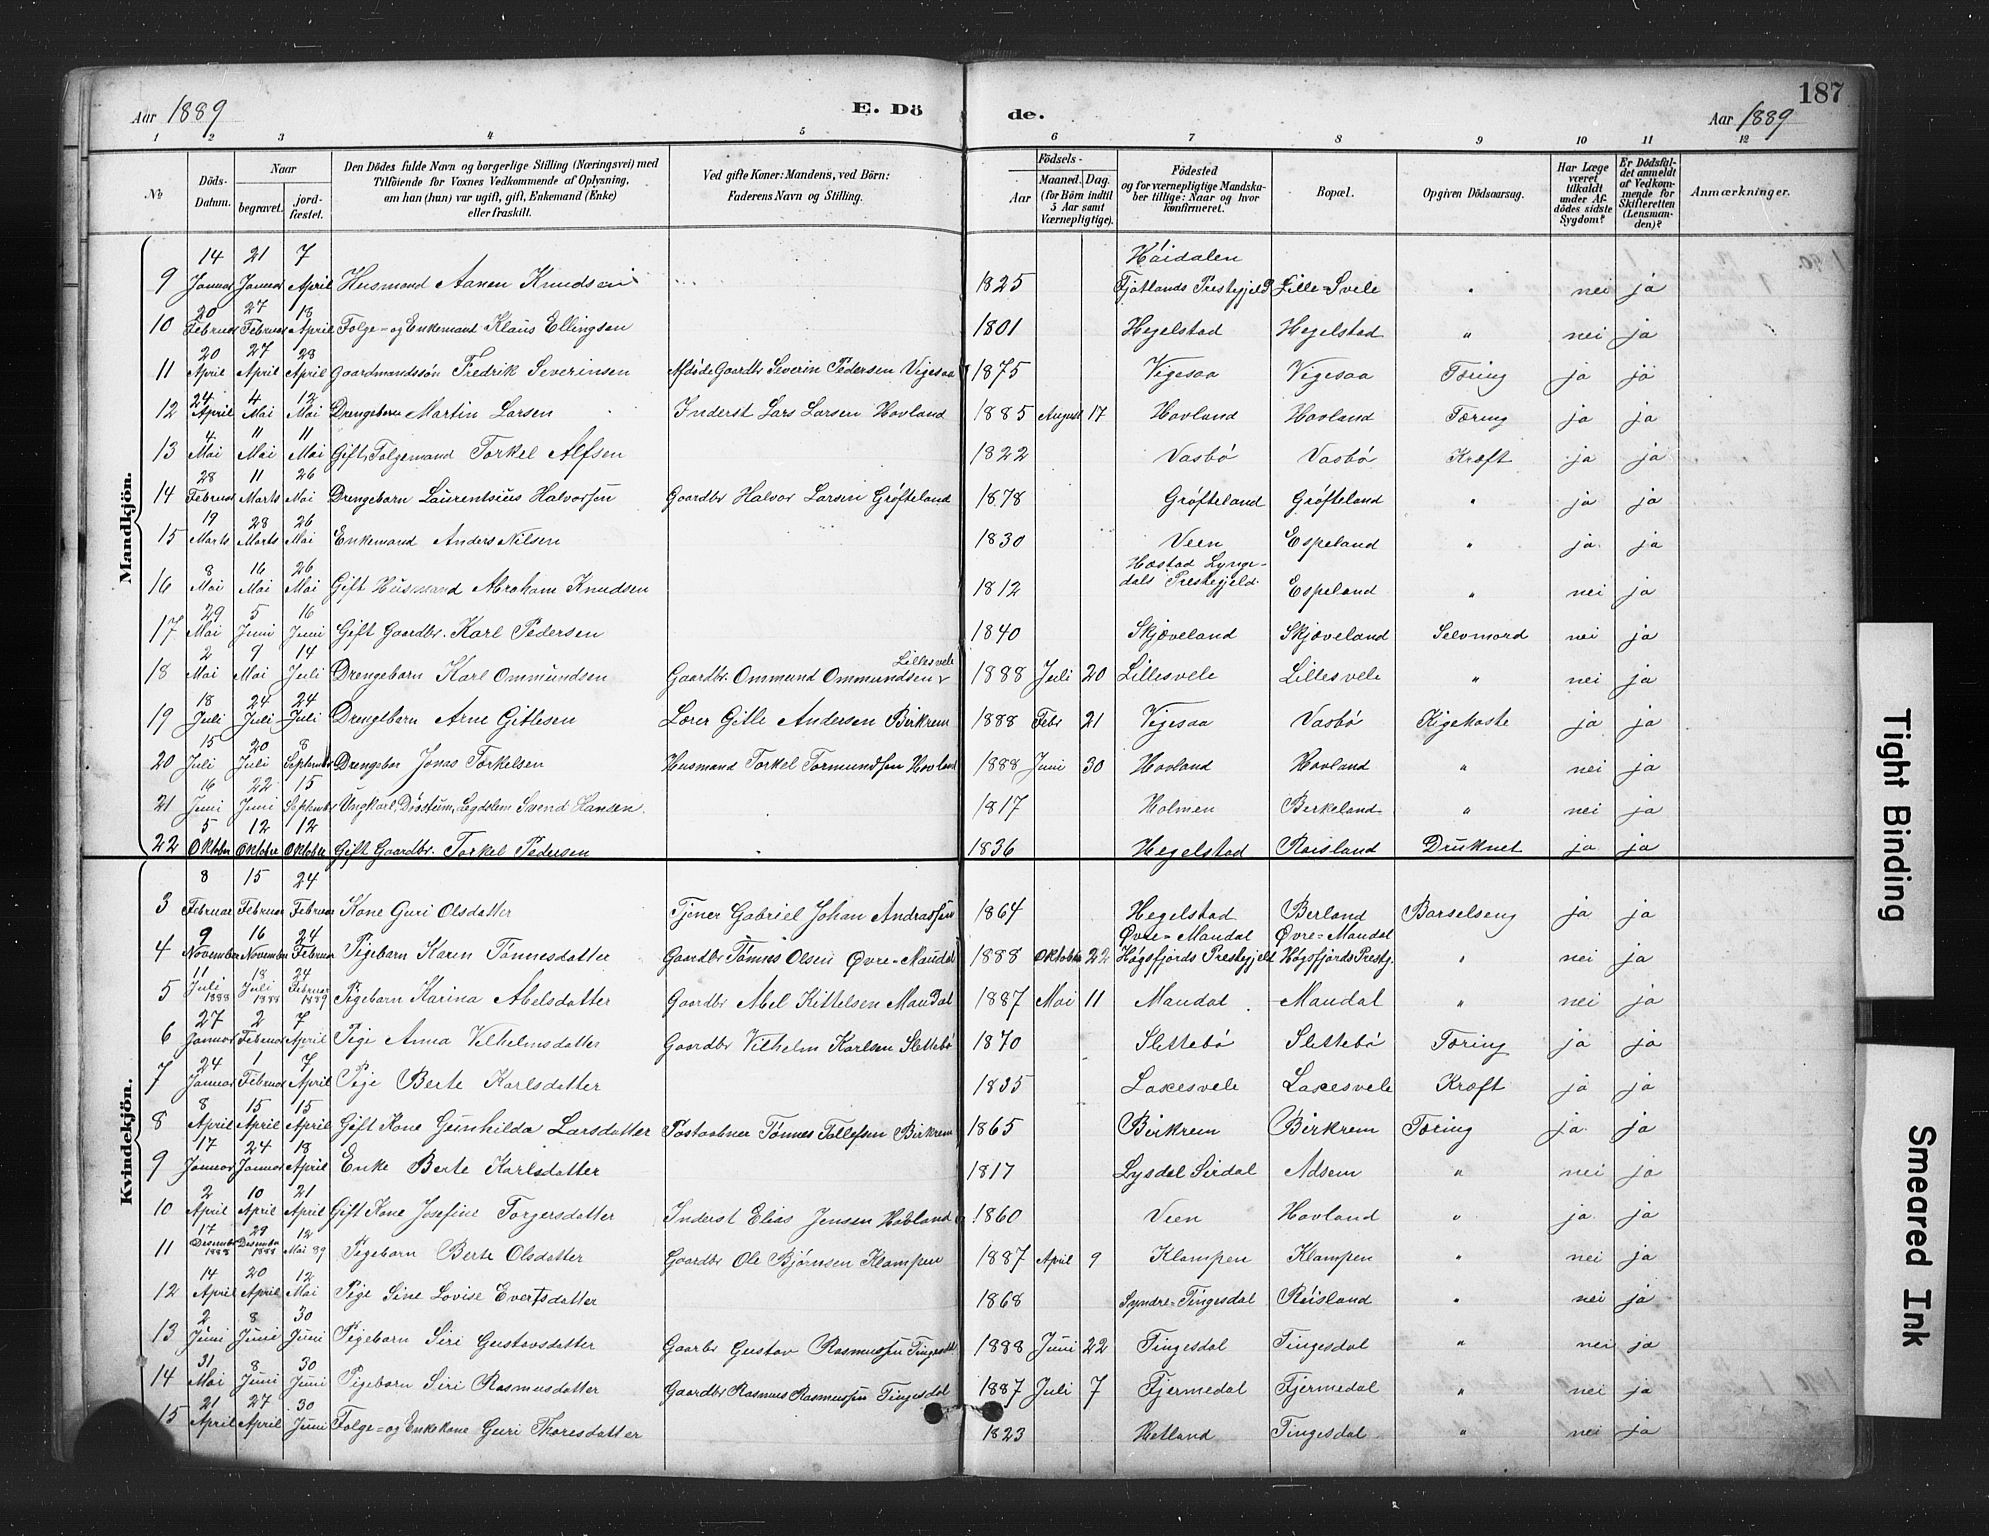 187
Aar 1889 E. Dö de. Aar 1889
1 2 3 4 5 6 7 8 9 10 11 12
No Döds-Datum. Naar begravet. jordfæstet. Den Dödes fulde Navn og borgerlige Stilling (Næringsvei) med Tilföiende for Voxnes Vedkommende af Oplysning, om han (hun) var ugift, gift, Enkemand (Enke) eller fraskilt. Ved gifte Koner: Mandens, ved Börn: Faderens Navn og Stilling. Födsels- Aar Maaned. Dag. (for Börn indtil 3 Aar samt Værnepligtige). Födested og for værnepligtige Mandskaber tillige: Naar og hvor konfirmeret. Bopæl. Opgiven Dödsaarsag. Har Læge været tilkaldt under Afdödes sidste Sygdom? Er Dödsfaldet anmeldt af Vedkommende for Skifteretten (Lensmanden)? Anmærkninger.
Mandkjön.
9 14 Januar 21 Januar 7 April Husmand Aanen Knudsen 1825 Háidalen Fjotlands Prestegjeld Lille=Svele " nei ja
10 20 Februar 27 Februar 18 April Folge=og Enkemand Klaus Ellingsen 1801 Hegelstad Hegelstad " nei ja
11 20 April 27 April 28 April Gaardmandssön Fredrik Severinsen Afdöde Gaardbr Severin Pedersen Vigesaa 1875 Vigesaa Vigesaa Tæring ja ja
12 24 April 4 Mai 12 Mai Drengebarn Martin Larsen Inderst Lars Larsen Hovland 1885 August 17 Hovland Hovland Tæring ja ja
13 4 Mai 11 Mai 11 Mai Gift Folgemand Torkel Alfsen 1822 Vasbø Vasbø Kræft ja ja
14 28 Februar 11 Marts 26 Mai Drengebarn Laurentsius Halvorsen Gaardbr Halvor Larsen Grøfteland 1878 Grøfteland Grøfteland " ja ja
15 19 Marts 28 Marts 26 Mai Enkemand Anders Nilsen 1830 Veen Espeland " ja ja
16 8 Mai 16 Mai 26 Mai Gift Husmand Abraham Knudsen 1812 Hæstad Lyngdals Prestegjeld Espeland " nei ja
17 29 Mai 5 Juni 16 Juni Gift Gaardbr. Karl Pedersen 1840 Skjæveland Skjæveland Selvmord nei ja
18 2 Mai 9 Mai 14 Juli Drengebarn Karl Ommundsen Gaardbr Ommund Ommundsen Lillesvele 1888 Juli 20 Lillesvele Lillesvele " nei ja
19 18 Juli 24 Juli 24 Juli Drengebarn Arne Gitlesen Lærer Gitle Andersen Birkrem 1888 Febr 21 Vigesaa Vasbø Kighoste ja ja
20 15 Juli 20 Juli 8 September Drengebar Jonas Torkelsen Husmand Torkel Tormundsen Hovland 1888 Juni 30 Hovland Hovland " nei ja
21 16 Juni 22 Juni 15 September Ungkarl, Døvstum, Legdelem Svend Hansen 1817 Holmen Berkeland " nei ja
22 5 Oktober 12 Oktober 12 Oktober Gift Gaardbr. Torkel Pedersen " 1836 Hegelstad Røisland Druknet ja ja
Kvindekjön.
3 8 Februar 15 Februar 24 Februar Kone Guri Olsdatter Tjener Gabriel Johan Andreassen 1864 Hegelstad Berland Barselseng ja ja
4 9 November 16 November 24 Februar Pigebarn Karen Tønnesdatter Gaardbr Tønnes Olsen Øvre=Maudal 1888 Oktober 22 Øvre=Maudal Høgsfjords Prestegjeld Øvre=Maudal Høgsfjords Prestg. " nei ja
5 11 Juli 1888 18 Juli 1888 24 Februar 1889 Pigebarn Karina Abelsdatter Gaardbr Abel Kittelsen Maudal 1887 Mai 11 Maudal Maudal " nei ja
6 27 Januar 2 Februar 7 April Pige Anna Vilhelmsdatter Gaardbr Vilhelm Karlsen Slettebø 1870 Slettebø Slettebø Tæring ja ja
7 24 Januar 1 Februar 7 April Pige Berte Karlsdatter 1835 Laxesvele Laxesvele Kræft ja ja
8 8 April 15 April 15 April Gift Kone Gunhilda Larsdatter Postaabner Tønnes Tollefsen Birkrem 1865 Birkrem Birkrem Tæring ja ja
9 17 Januar 24 Januar 18 April Enke Berte Karlsdatter 1817 Lysdal Sirdal Adsem " nei ja
10 2 April 10 April 21 April Gift Kone Josefine Torgersdatter Inderst Elias Jensen Hovland 1860 Veen Hovland " ja ja
11 17 Desember 1888 29 Desember 1888 12 Mai 89 Pigebarn Berte Olsdatter Gaardbr Ole Bjørnsen Klampen 1887 April 9 Klampen Klampen " nei ja
12 14 April 20 April 12 Mai Pige Sine Lovise Evertsdatter 1868 Syndre=Tingesdal Røisland " nei ja
13 2 Juni 8 Juni 30 Juni Pigebarn Siri Gustavsdatter Gaarbr Gustav Rasmussen Tingesdal 1888 Juni 22 Tingesdal Tingesdal " nei ja
14 31 Mai 8 Juni 30 Juni Pigebarn Siri Rasmusdatter Gaardbr Rasmus Rasmussen Tingesdal 1887 Juli 7 Fjermedal Fjermedal " nei ja
15 21 April 27 April 30 Juni Folge=og Enkekone Guri Thoresdatter 1823 Hetland Tingesdal " nei ja
Tight Binding
Smeared Ink